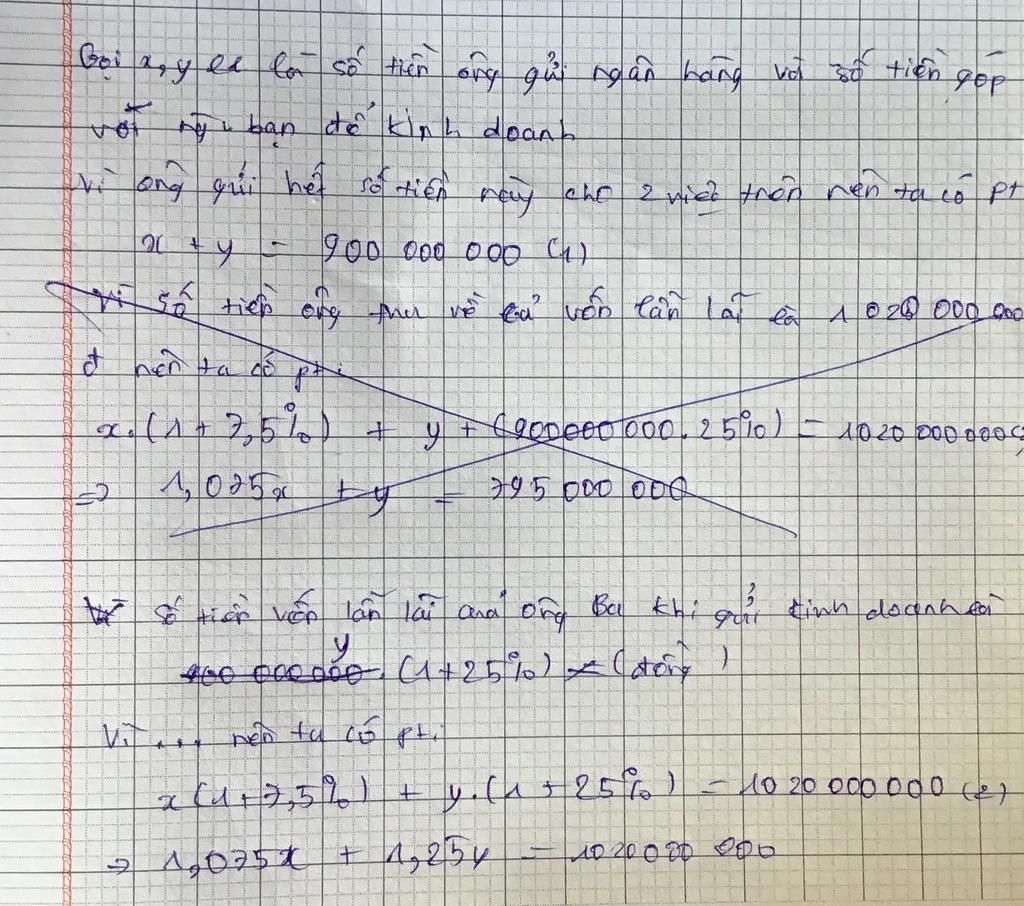 Gọi x, y lần lượt là số tiền ông gửi ngân hàng và số tiền góp
với bạn để kinh doanh
Vì ông gửi hết số tiền này cho 2 việc trên nên ta có pt
x + y = 900 000 000 (1)
Vì số tiền ông thu về cả vốn lẫn lãi là 1 020 000 000
đ nên ta có pt:
x.(1 + 7,5%) + y + (900000000.25%) = 1020 000000
=> 1,075x + y = 795 000 000
Số tiền vốn lẫn lãi của ông Ba khi gửi kinh doanh là
y
900 000000. (1+25%) (đồng)
Vì ... nên ta có pt:
x(1+7,5%) + y.(1 + 25%) = 1020 000000 (2)
=> 1,075x + 1,25y = 1020020 000